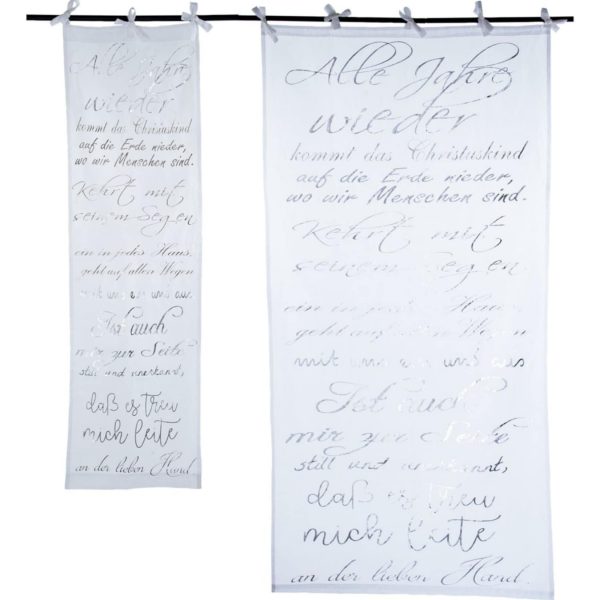 Alle Jahre
wieder
kommt das Christuskind
auf die Erde nieder,
wo wir Menschen sind.
Kehrt mit
seinem Segen
ein in jedes Haus,
geht auf allen Wegen
mit uns ein und aus
Ist auch
mir zur Seite
still und unerkannt,
daß es treu
mich leite
an der lieben Hand
Alle Jahre
wieder
kommt das Christuskind
auf die Erde nieder,
wo wir Menschen sind.
Kehrt mit
seinem Segen
ein in jedes Haus,
geht auf allen Wegen
mit uns ein und aus
Ist auch
mir zur Seite
still und unerkannt,
daß es treu
mich leite
an der lieben Hand.